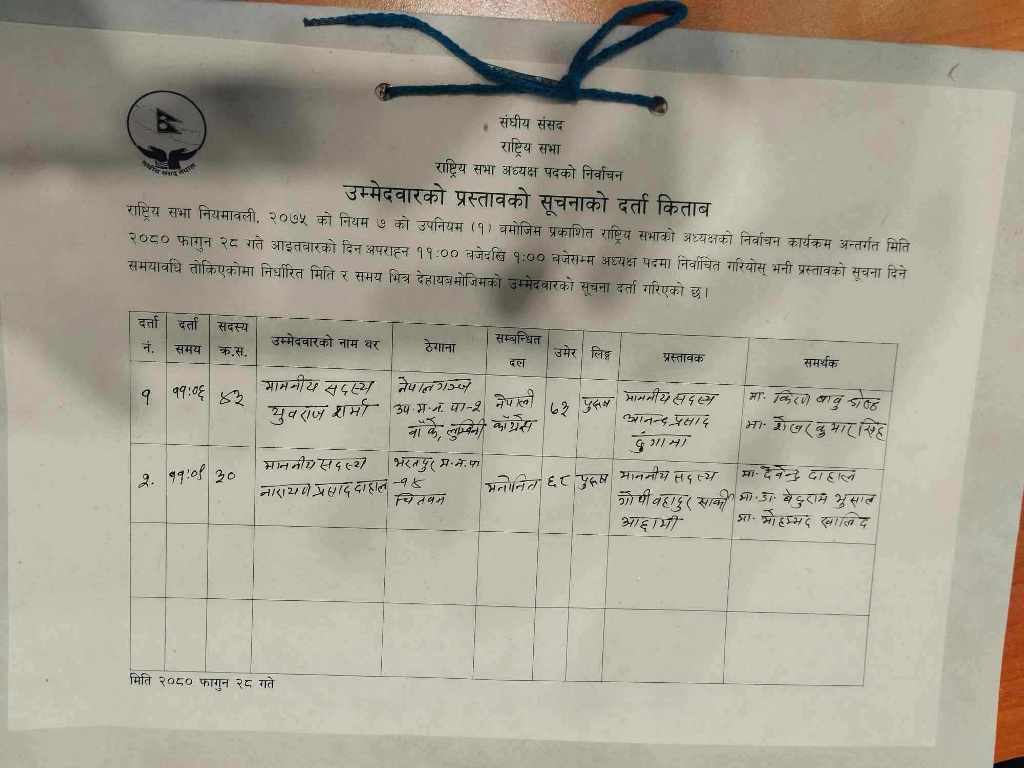 संघीय संसद
राष्ट्रिय सभा
राष्ट्रिय सभा अध्यक्ष पदको निर्वाचन
उम्मेदवारको प्रस्तावको सूचनाको दर्ता किताब
राष्ट्रिय सभा नियमावली, २०७५ को नियम ७ को उपनियम (१) बमोजिम प्रकाशित राष्ट्रिय सभाको अध्यक्षको निर्वाचन कार्यक्रम अन्तर्गत मिति
२०८० फागुन २८ गते आइतवारको दिन अपराह्न ११:०० बजेदेखि १:०० बजेसम्म अध्यक्ष पदमा निर्वाचित गरियोस् भनी प्रस्तावको सूचना दिने
समयावधि तोकिएकोमा निर्धारित मिति र समय भित्र देहायबमोजिमको उम्मेदवारको सूचना दर्ता गरिएको छ।
दर्ता नं. दर्ता समय सदस्य क्र.स. उम्मेदवारको नाम थर ठेगाना सम्बन्धित दल उमेर लिङ्ग प्रस्तावक समर्थक
१ ११:०६ ४२ माननीय सदस्य नेपालगञ्ज नेपाली ६२ पुरुष माननीय सदस्य मा. किरण बाबु श्रेष्ठ
युवराज शर्मा उप.म.न.पा-२ काँग्रेस आनन्द प्रसाद मा. शेखर कुमार सिंह
बाँके, लुम्बिनी ढुंगाना
२. ११:०९ ३० माननीय सदस्य भरतपुर म.न.पा मनोनित ६८ पुरुष माननीय सदस्य मा. देवेन्द्र दाहाल
नारायण प्रसाद दाहाल -१५ गोपी बहादुर सार्की मा. डा. बेदुराम भुसाल
चितवन अछामी मा. मोहम्मद खालिद
मिति २०८० फागुन २८ गते